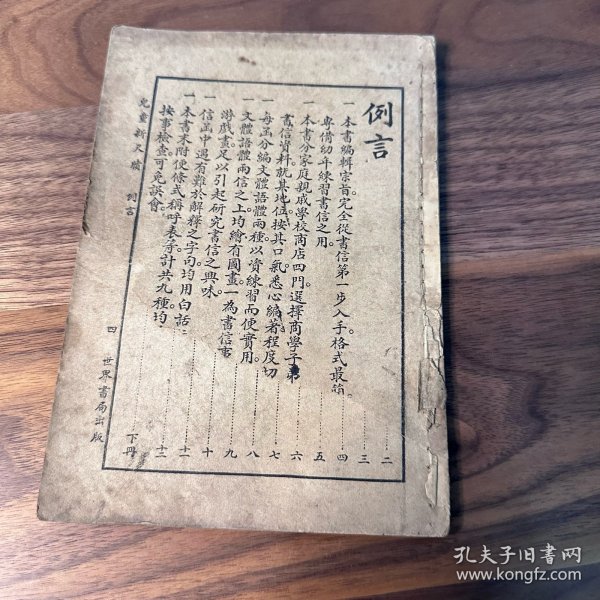 例言
一 本書編輯宗旨完全從書信第一步入手格式最簡。
專備幼年練習書信之用。
一 本書分家庭親戚學校商店四門。選擇商學子弟
書信資料就其地位按其口氣。悉心編著。程度切
一 每函分編文體語體兩種以資練習而便實用。
一 文體語體兩信之上均繪有圖畫一為書信
游戲畫足以引起研究書信之興味。
一 信函中遇有難於解釋之字句均用白話
一 本書末附便條式稱呼表等計共九種均
按事檢查可免誤會。
二
三
四
五
六
七
八
九
十
十一
十二
下冊
兒童新尺牘 例言
四 世界書局出版
孔夫子旧书网
www.kongfz.com